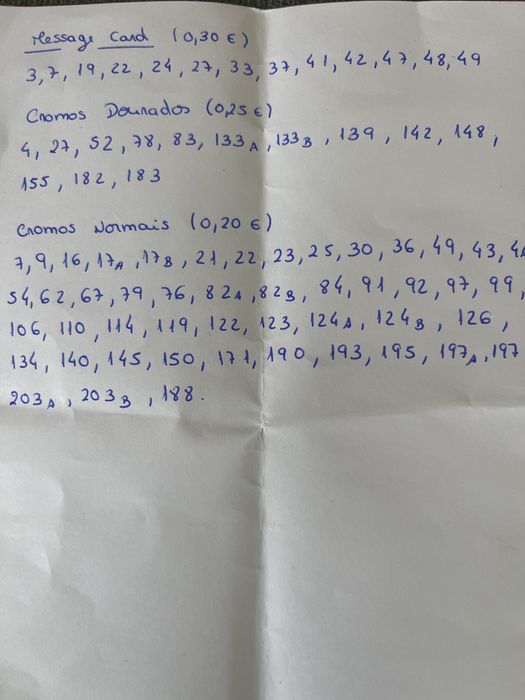 Message Card (0,30 €)
3, 7, 19, 22, 24, 27, 33, 37, 41, 42, 47, 48, 49
Cromos Dourados (0,25 €)
4, 27, 52, 78, 83, 133A, 133B, 139, 142, 148,
155, 182, 183
Cromos Normais (0,20 €)
7, 9, 16, 17A, 17B, 21, 22, 23, 25, 30, 36, 49, 43,
54, 62, 67, 79, 76, 82A, 82B, 84, 91, 92, 97, 99,
106, 110, 114, 119, 122, 123, 124A, 124B, 126,
134, 140, 145, 150, 171, 190, 193, 195, 197A, 197
203A, 203B, 188.